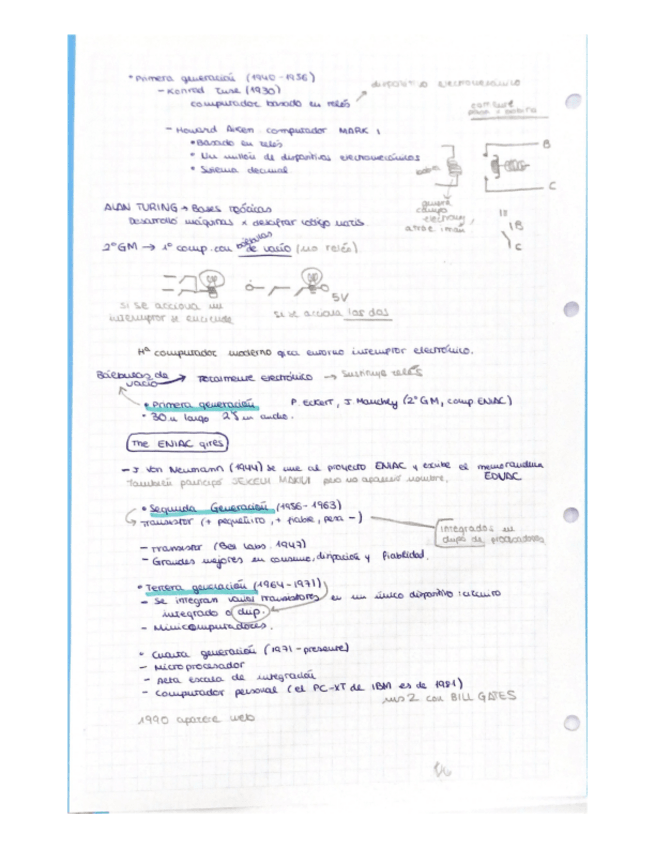 • Primera generación (1940-1956)
dispositivo electromecánico
- Konrad Zuse (1930)
computador basado en relés
- Howard Aiken computador MARK 1
• Basado en relés
• Un millón de dispositivos electromecánicos
• Sistema decimal
B
C
genera
campo
atrae imán
1B
C
ALAN TURING → Bases teóricas
Desarrolló máquinas x descifrar código nazis.
2ªGM → 1º comp. con bombillas de vacío (no relés)
5V
si se acciona un
interruptor se enciende
si se acciona las dos
Hª computador moderno gira entorno interruptor electrónico.
Válvulas de vacío → Totalmente electrónico → Sustituye relés
• Primera generación P. Eckert, J. Mauchly (2ªGM, comp ENIAC)
• 30m largo 2'5m ancho.
The ENIAC girls
- J Von Neumann (1944) se une al proyecto ENIAC y escribe el memorandum
EDVAC
También participó pero no aparece nombre.
• Segunda Generación (1956-1963)
Transistor (+ pequeñito, + fiable, pesa -)
integrados en
chips de procesadores
- Transistor (Bell Labs. 1947)
- Grandes mejoras en consumo, disipación y fiabilidad.
• Tercera generación (1964-1971)
- Se integran varios transistores en un único dispositivo: circuito
integrado o chip.
- Minicomputadores.
• Cuarta generación (1971-presente)
- Microprocesador
- Alta escala de integración
- Computador personal (el PC-XT de IBM es de 1981)
con BILL GATES
1990 aparece web